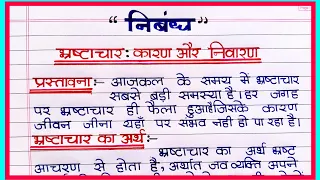 “ निबंध ”
भ्रष्टाचार : कारण और निवारण
प्रस्तावना:- आजकल के समय में भ्रष्टाचार
सबसे बड़ी समस्या है। हर जगह
पर भ्रष्टाचार ही फैला हुआ है जिसके कारण
जीवन जीना यहाँ पर संभव नही हो पा रहा है।
भ्रष्टाचार का अर्थ:-
भ्रष्टाचार का अर्थ भ्रष्ट
आचरण से होता है, अर्थात जब व्यक्ति अपने